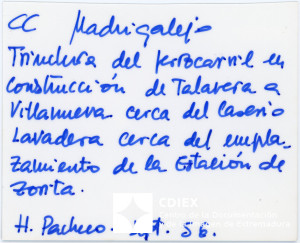 CC Madrigalejo
Trinchera del ferrocarril en
construcción de Talavera a
Villanueva cerca del Caserio
Lavadera cerca del empla-
zamiento de la Estación de
Zorita.
CDIEX
H. Pacheco. Sept. 56.